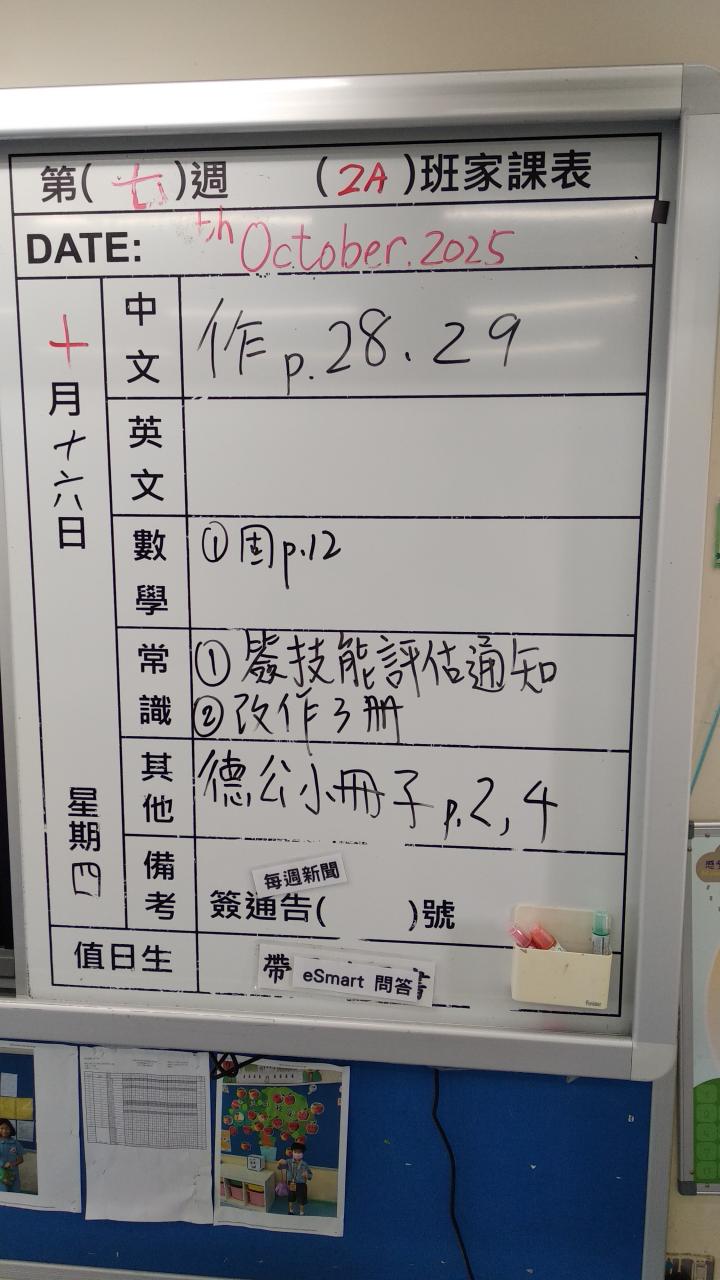 第(七)週 (2A)班家課表
DATE: th October.2025
十月十六日 星期四
中文 作 p.28、29
英文
數學 ①固p.12
常識 ①簽技能評估通知
②改作3冊
其他 德公小冊子 p.2,4
備考 每週新聞
簽通告( )號
值日生 帶 eSmart 問答